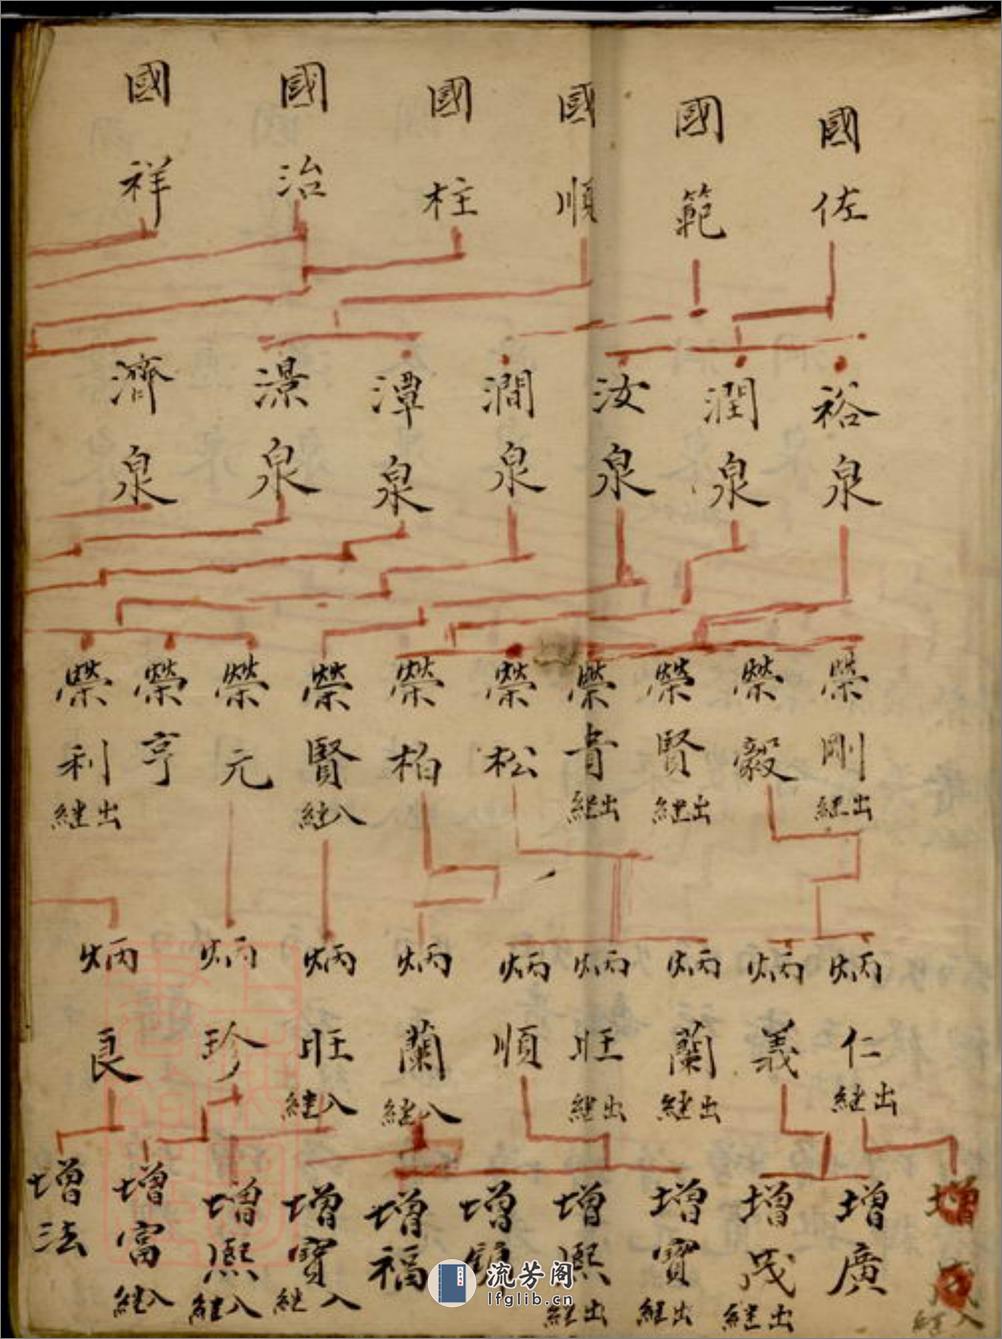 國佐 國範 國順 國柱 國治 國祥
裕泉 潤泉 汝泉 澗泉 潭泉 濼泉 濟泉
榮剛出继 榮毅 榮賢出继 榮青出继 榮松 榮柏 榮賢入继 榮元 榮亨 榮利出继
炳仁出继 炳義 炳蘭出继 炳旺出继 炳順 炳蘭入继 炳旺入继 炳珍 炳良
增入继 增廣 增茂出继 增寶出继 增熙出继 增 增福 增寶入继 增熙入继 增富入继 增法
流芳阁
lfglib.cn